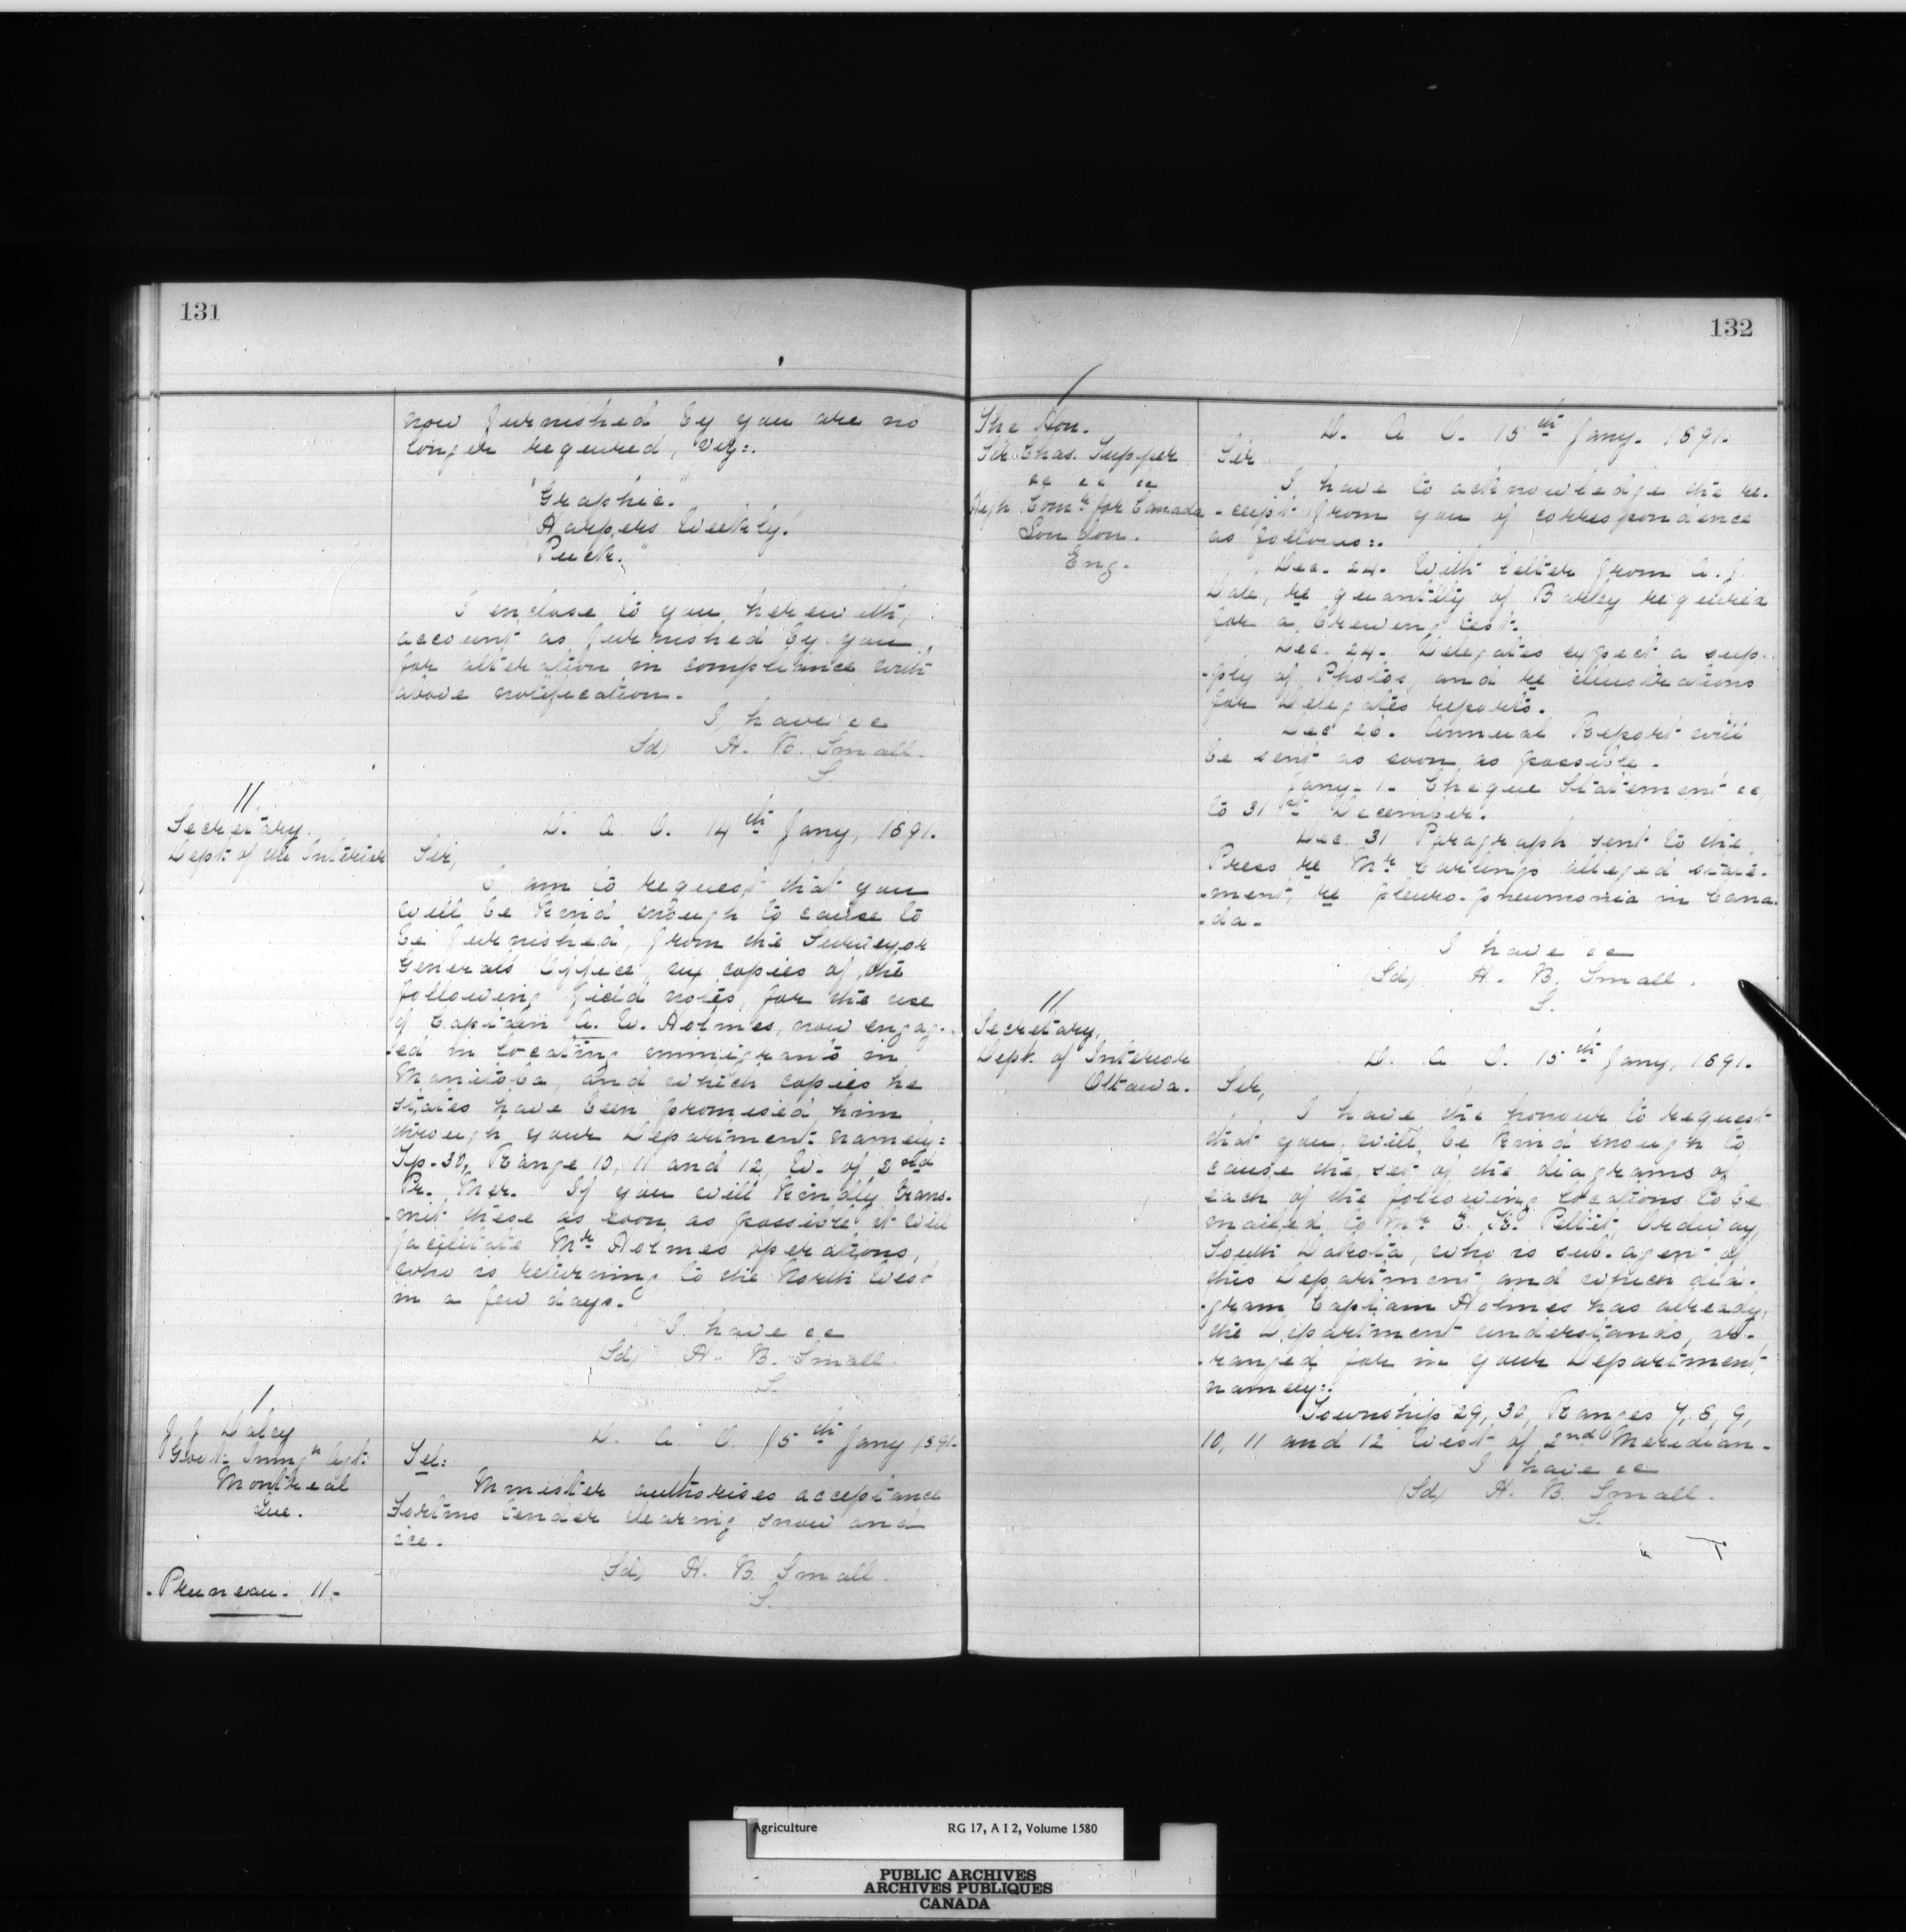 131
now furnished by you are no
longer required, viz:.
"Graphic."
Harpers Weekly."
"Puck."
I enclose to you herewith,
account as furnished by you
for alteration in compliance with
above notification.
I have &c
(Sd) H. B. Small.
S.
11
Secretary.
Dept. of the Interior
D. A. O. 14th Jany, 1891.
Sir,
I am to request that you
will be kind enough to cause to
be furnished, from the Surveyor
Generals Office, six copies of the
following field notes, for the use
of Captain A. W. Holmes, now engag-
-ed in locating immigrants in
Manitoba, and which copies he
states have been promised him
through your Department namely:
Tp. 30, Range 10, 11 and 12, W. of 2nd
Pr. Mer. If you will kindly trans-
-mit these as soon as possible it will
facilitate Mr Holmes operations,
who is returning to the North West
in a few days.
I have &c
(Sd) H. B. Small.
S.
1
J. J. Daley
Govt. Immgn Agt.
Montreal
Que.
D. A. O. 15th Jany 1891.
Tel:
Minister authorises acceptance
Fortins tender clearing snow and
ice.
(Sd) H. B. Small.
S.
- Pruneau. 11 -
132
1
The Hon.
Sir Chas. Tupper
&c &c &c
High Comr. for Canada
London.
Eng.
D. A. O. 15th Jany. 1891.
Sir
I have to acknowledge the re-
-ceipt from you of correspondence
as follows:.
Dec. 24. With letter from A. J.
Dale, re quantity of Barley required
for a brewing test.
Dec. 24. Delegates expect a sup-
-ply of Photos, and re illustrations
for Delegates reports.
Dec 26. Annual Report will
be sent as soon as possible.
Jany. 1. Cheque Statement &c
to 31st December.
Dec. 31 Paragraph sent to the
Press re Mr Carlings alleged state-
-ment, re pleuro-pneumonia in Cana-
-da.
I have &c
(Sd) H. B. Small.
S.
11
Secretary,
Dept. of Interior
Ottawa.
D. A. O. 15th Jany, 1891.
Sir,
I have the honour to request
that you will, be kind enough to
cause the set of the diagrams of
each of the following locations to be
mailed to Mr E. Pettit, Ordway,
South Dakota, who is sub-agent of
this Department and which dia-
-gram Captiam Holmes has already,
the Department understands, ar-
-ranged for in your Department,
namely:.
Township 29, 30, Ranges 7, 8, 9,
10, 11 and 12 West of 2nd Meridian.
I have &c
(Sd) H. B. Small.
S.
Agriculture RG 17, A I 2, Volume 1580
PUBLIC ARCHIVES
ARCHIVES PUBLIQUES
CANADA